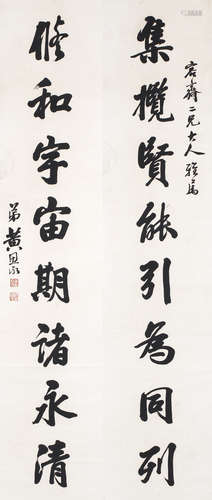 容齋二兄大人雅屬
集攬賢能引為同列
修和宇宙期諸永清
弟黃恩永